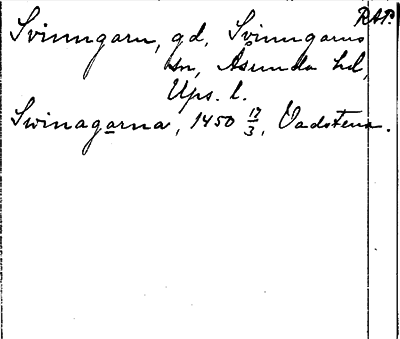 RAP.
Svinngarn, gd, Svinngarns
sn, Åsunda hd,
Ups. l.
Swinagarna, 1450 17/3, Vadstena.